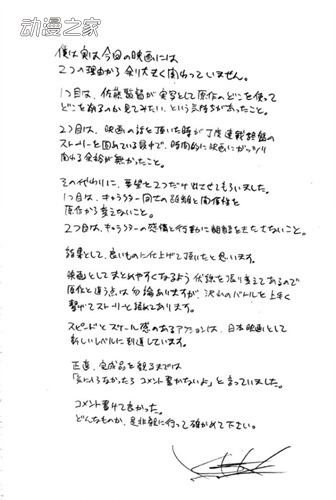 动漫之家
僕は実は今回の映画には
2つの理由から余り大きく関わっていません。
1つ目は、佐藤監督が実写として原作のどこを使って
どこを削るのか見てみたい、という気持ちがあったこと。
2つ目は、映画の話を頂いた時が丁度連載終盤の
ストーリーを固めている最中で、時間的に映画にがっつり
関わる余裕が無かったこと。
その代わりに、要望を2つだけ出させてもらいました。
1つ目は、キャラクター同士の距離と関係性を
原作から変えないこと。
2つ目は、キャラクターの感情と行動に齟齬をきたさないこと。
結果として、良いものに仕上げて頂いたと思います。
映画としてまとめやすくなるよう伏線を張り変えてあるので
原作と違う点は勿論ありますが、沢山のバトルを上手く
繋げてストーリーを詰めてあります。
スピードとスケール感のあるアクションは、日本映画として
新しいレベルに到達しています。
正直、完成品を観るまでは
「気に入らなかったらコメント書かないよ」と言っていました。
コメント書けて良かった。
どんなものか、是非観に行って確かめて下さい。